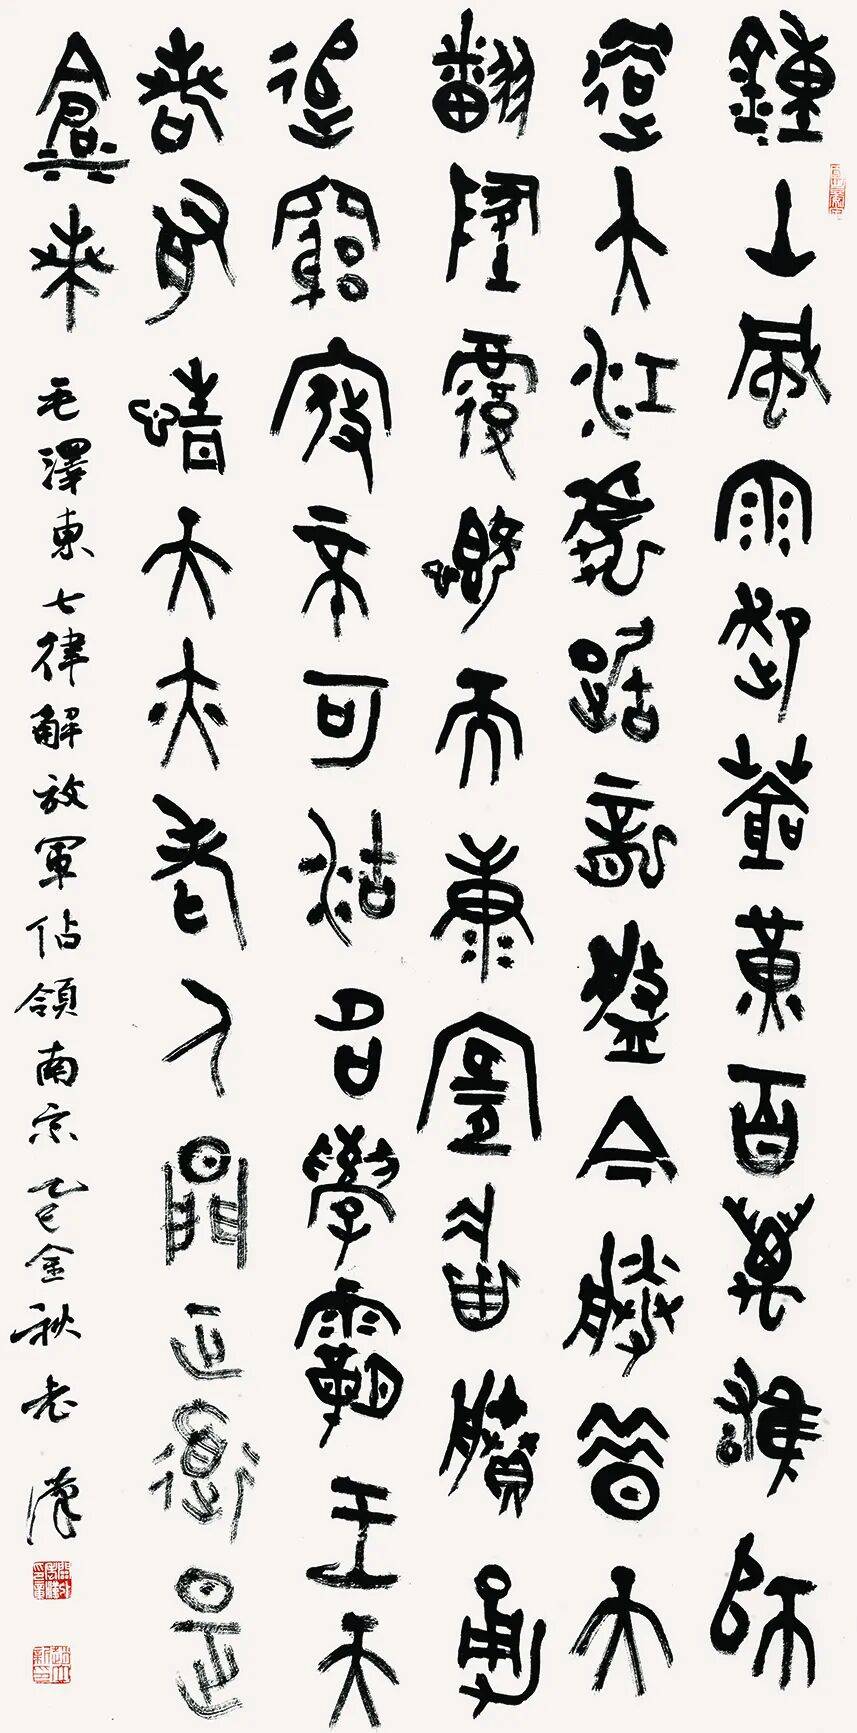 鍾山風雨起蒼黃百萬雄師
過大江虎踞龍盤今勝昔天
翻地覆慨而慷宜將剩勇
追窮寇不可沽名學霸王天
若有情天亦老人間正道是
滄桑 毛澤東七律解放軍佔領南京乙巳金秋老漢